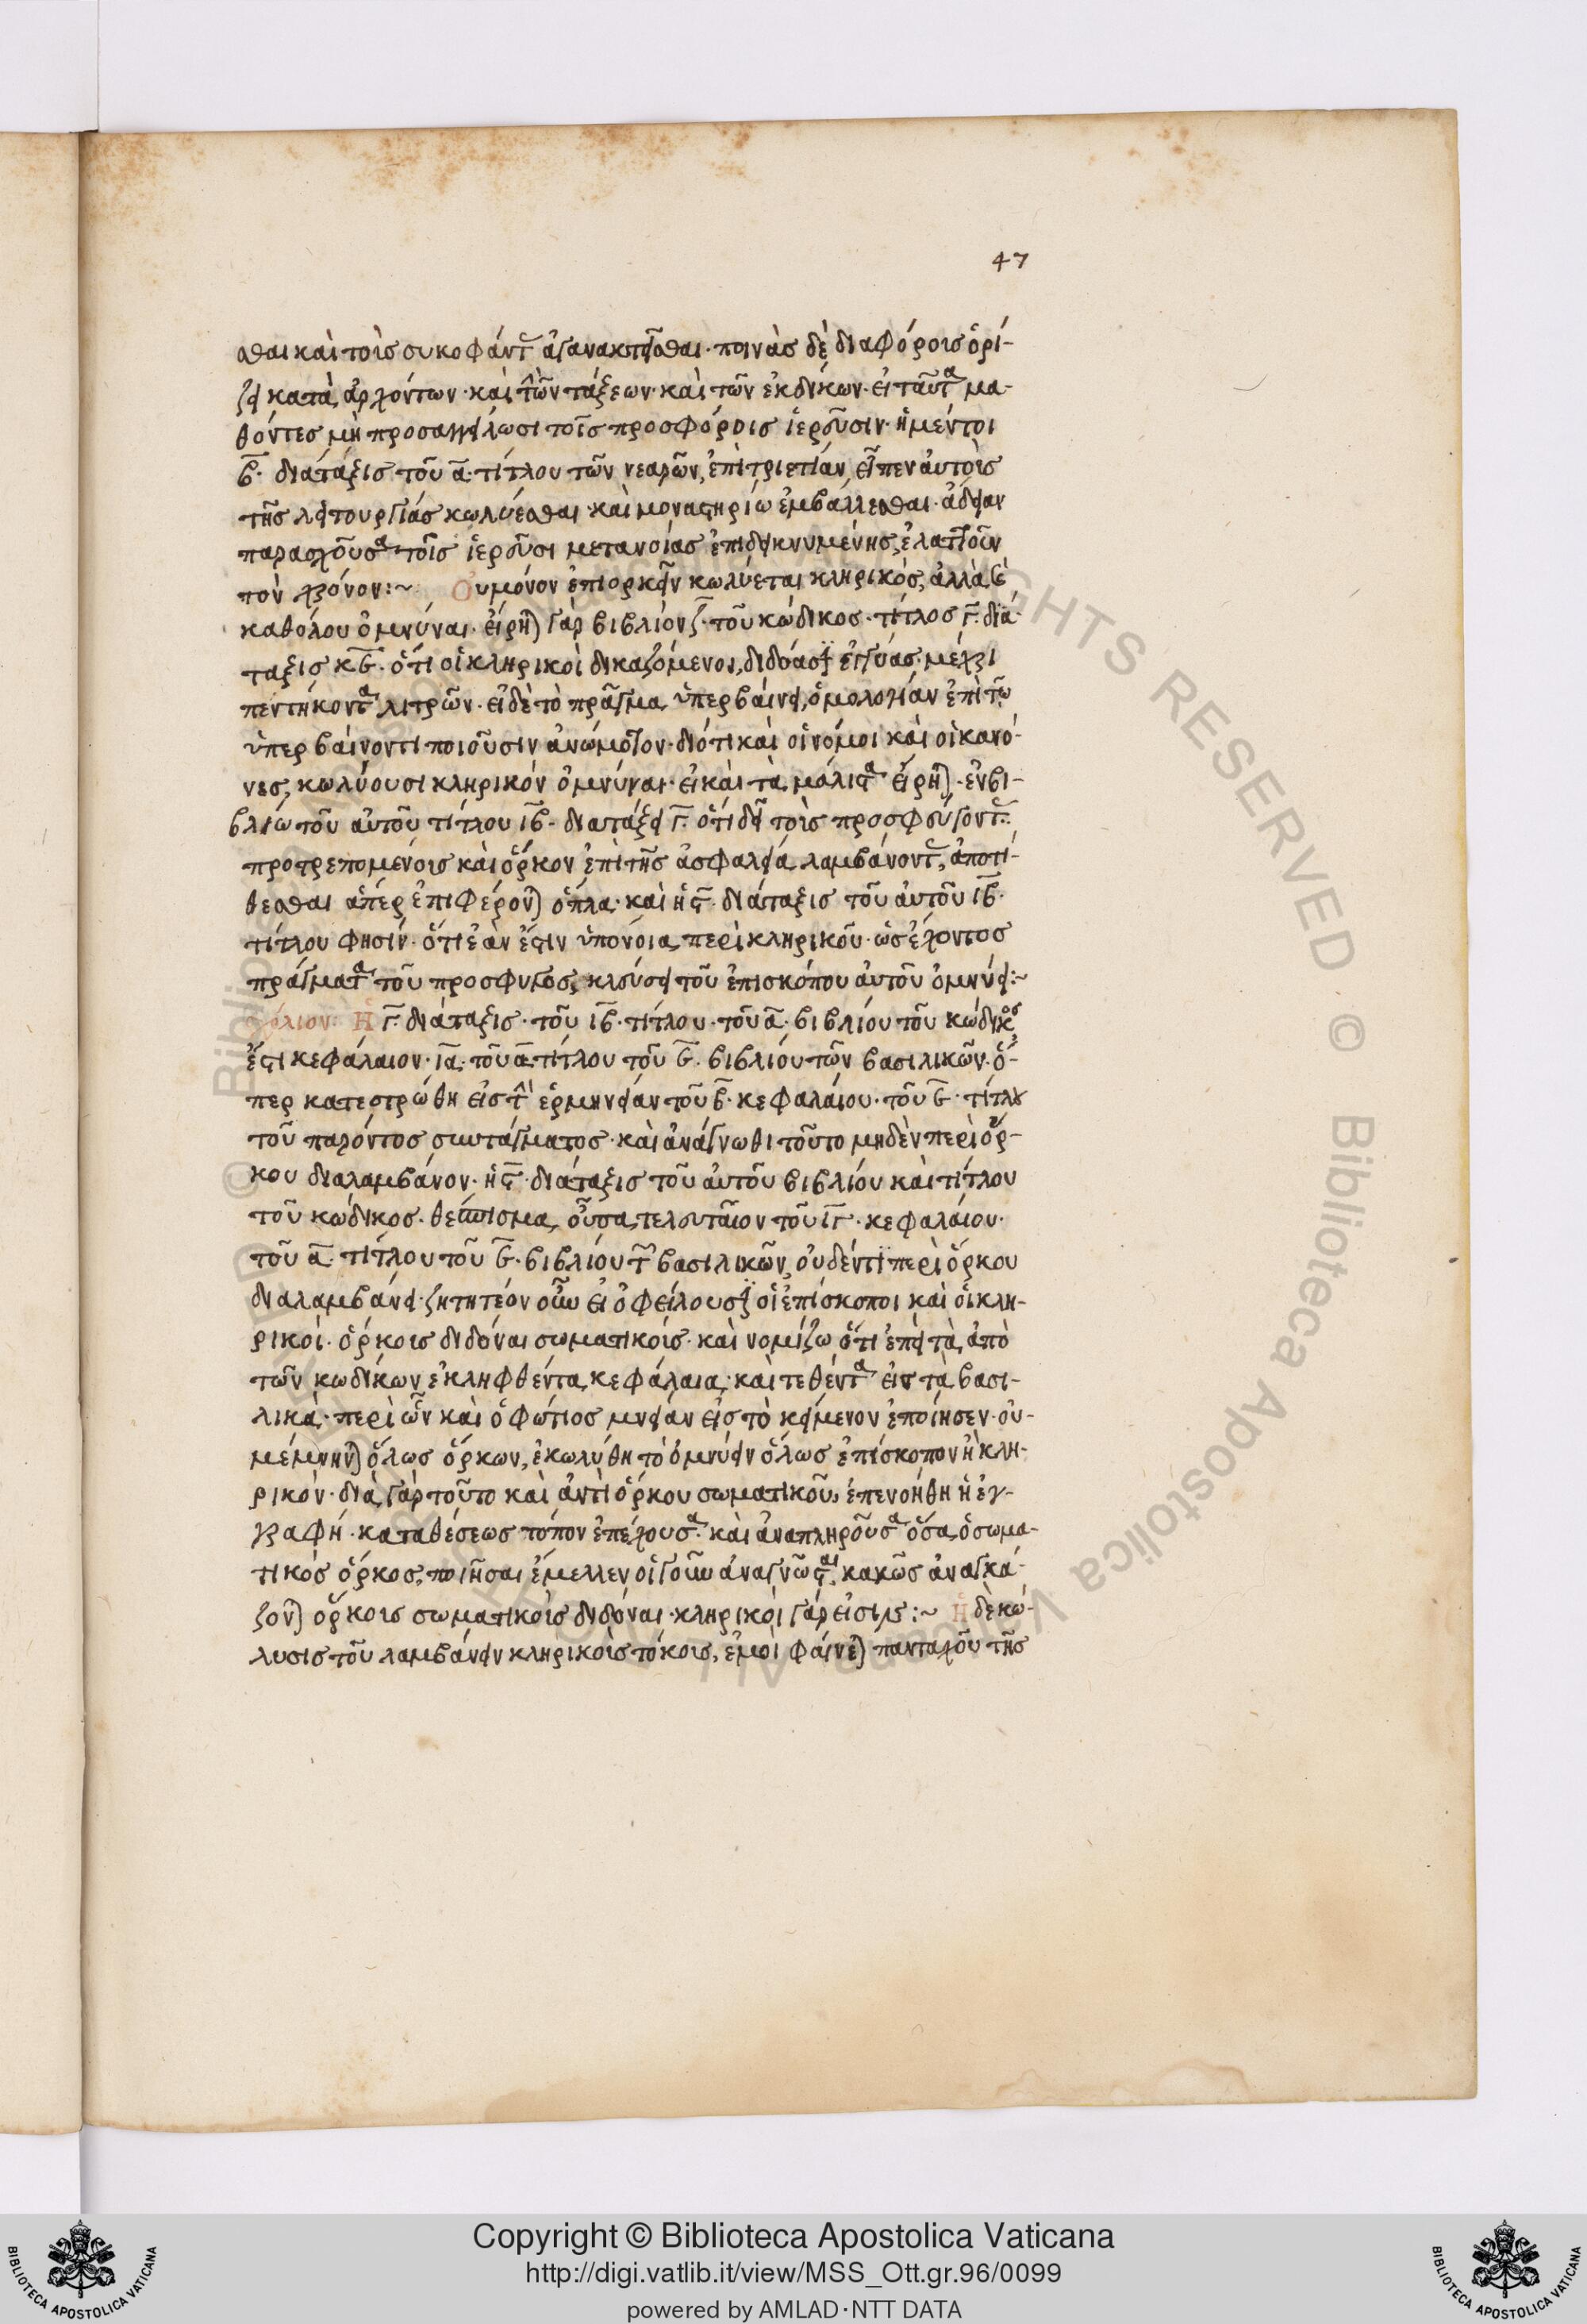 47
σθαι και τοὺς συκοφάντ(ας) ἀγανακτεῖσθαι· ποινὰς δὲ διαφόρους ὁρί-
ζει κατὰ ἀρχόντων· καὶ τῶν τάξεων· καὶ τῶν ἐκδίκων· εἰ ταῦτα μα-
θόντες μὴ προσαγγείλωσι τοῖς προσφόροις ἱεροῦσιν· ἡ μέντοι
β̅· διάταξις τοῦ α̅· τίτλου τῶν νεαρῶν, ἐπὶ τριετίαν, εἶπεν αὐτοὺς
τῆς λειτουργίας κωλύεσθαι καὶ μοναστηρίω ἐμβάλλεσθαι· ἄδειαν
παρασχοῦσα τοῖς ἱεροῦσι μετανοίας ἐπιδεικνυμένης, ἐλαττοῦν
τὸν χρόνον:~ Οὐ μόνον ἐπιορκεῖν κωλύεται κληρικός, ἀλλὰ καὶ
καθόλου ὀμνύναι· εἴρηται γὰρ βιβλίον ζ̅· τοῦ κώδικος· τίτλος γ̅· διά-
ταξις κϛ̅· ὅτι οἱ κληρικοὶ δικαζόμενοι, διδόασιν ἐγγύας· μέχρι
πεντήκοντα λιτρῶν· εἰ δὲ τὸ πρᾶγμα ὑπερβαίνει, ὁμολογίαν ἐπὶ τῶ
ὑπερβαίνοντι ποιοῦσιν ἀνώμοτον· διότι καὶ οἱ νόμοι καὶ οἱ κανό-
νες, κωλύουσι κληρικὸν ὀμνύναι· εἰ καὶ τὰ μάλιστα εἴρηται· ἐν βι-
βλίω τοῦ αὐτοῦ τίτλου ιβ̅· διατάξει γ̅· ὅτι δεῖ τοὺς προσφεύγοντ(ας)
προτρεπομένους καὶ ὅρκον ἐπὶ τῆς ἀσφαλεία λαμβάνοντ(ας), ἀποτί-
θεσθαι ἅπερ ἐπιφέρονται ὅπλα· καὶ ἡ ϛ̅· διάταξις τοῦ αὐτοῦ ιβ̅·
τίτλου φησίν· ὅτι ἐὰν ἔστιν ὑπόνοια περὶ κληρικοῦ· ὡς ἔχοντος
πράγματα τοῦ προσφυγος, κελεύσει τοῦ ἐπισκόπου αὐτοῦ ὀμνύει:~
σχόλιον: Ἡ γ̅· διάταξις· τοῦ ιβ̅· τίτλου· τοῦ α̅· βιβλίου τοῦ κώδικος
ἔστι κεφάλαιον· ια̅· τοῦ α̅ τίτλου τοῦ ε̅· βιβλίου τῶν βασιλικῶν· ὅ-
περ κατεστρώθη εἰς τὴν ἑρμηνείαν τοῦ β̅· κεφαλαίου· τοῦ θ̅· τίτλου
τοῦ παρόντος συντάγματος· καὶ ἀνάγνωθι τοῦτο μηδὲν περὶ ὅρ-
κου διαλαμβάνον· ἡ ϛ̅· διάταξις τοῦ αὐτοῦ βιβλίου καὶ τίτλου
τοῦ κώδικος· θέσπισμα οὖσα τελευταῖον τοῦ ιγ̅· κεφαλαίου·
τοῦ α̅· τίτλου τοῦ ε̅· βιβλίου τῶν βασιλικῶν, οὐδέν τι περὶ ὅρκου
διαλαμβάνει· ζητητέον οὖν εἰ ὀφείλουσιν οἱ ἐπίσκοποι καὶ οἱ κλη-
ρικοὶ· ὅρκους διδόναι σωματικούς· καὶ νομίζω ὅτι ἐπεὶ τὰ ἀπὸ
τῶν κωδίκων ἐκληφθέντα κεφάλαια, καὶ τεθέντα εἰς τὰ βασι-
λικά· περὶ ὧν καὶ ὁ Φώτιος μνείαν εἰς τὸ κείμενον ἐποίησεν· οὐ-
μέμνηνται ὅλως ὅρκων, ἐκωλύθη τὸ ὀμνύειν ὅλως ἐπίσκοπον ἢ κλη-
ρικόν· διὰ γὰρ τοῦτο καὶ ἀντὶ ὅρκου σωματικοῦ, ἐπενοήθη ἡ ἐγ-
γραφὴ· καταθέσεως τόπον ἐπέχουσα· καὶ ἀναπληροῦσα ὅσα ὁ σωμα-
τικὸς ὅρκος, ποιῆσαι ἔμελλεν οἱ γοῦν ἀναγνῶσται, κακῶς ἀναγκά-
ζονται ὅρκους σωματικοὺς διδόναι· κληρικοὶ γάρ εἰσιν:~ Ἡ δὲ κώ-
λυσις τοῦ λαμβάνειν κληρικοὺς τόκους, ἐμοὶ φαίνεται πανταχοῦ τῆς
Copyright © Biblioteca Apostolica Vaticana
http://digi.vatlib.it/view/MSS_Ott.gr.96/0099
powered by AMLAD·NTT DATA